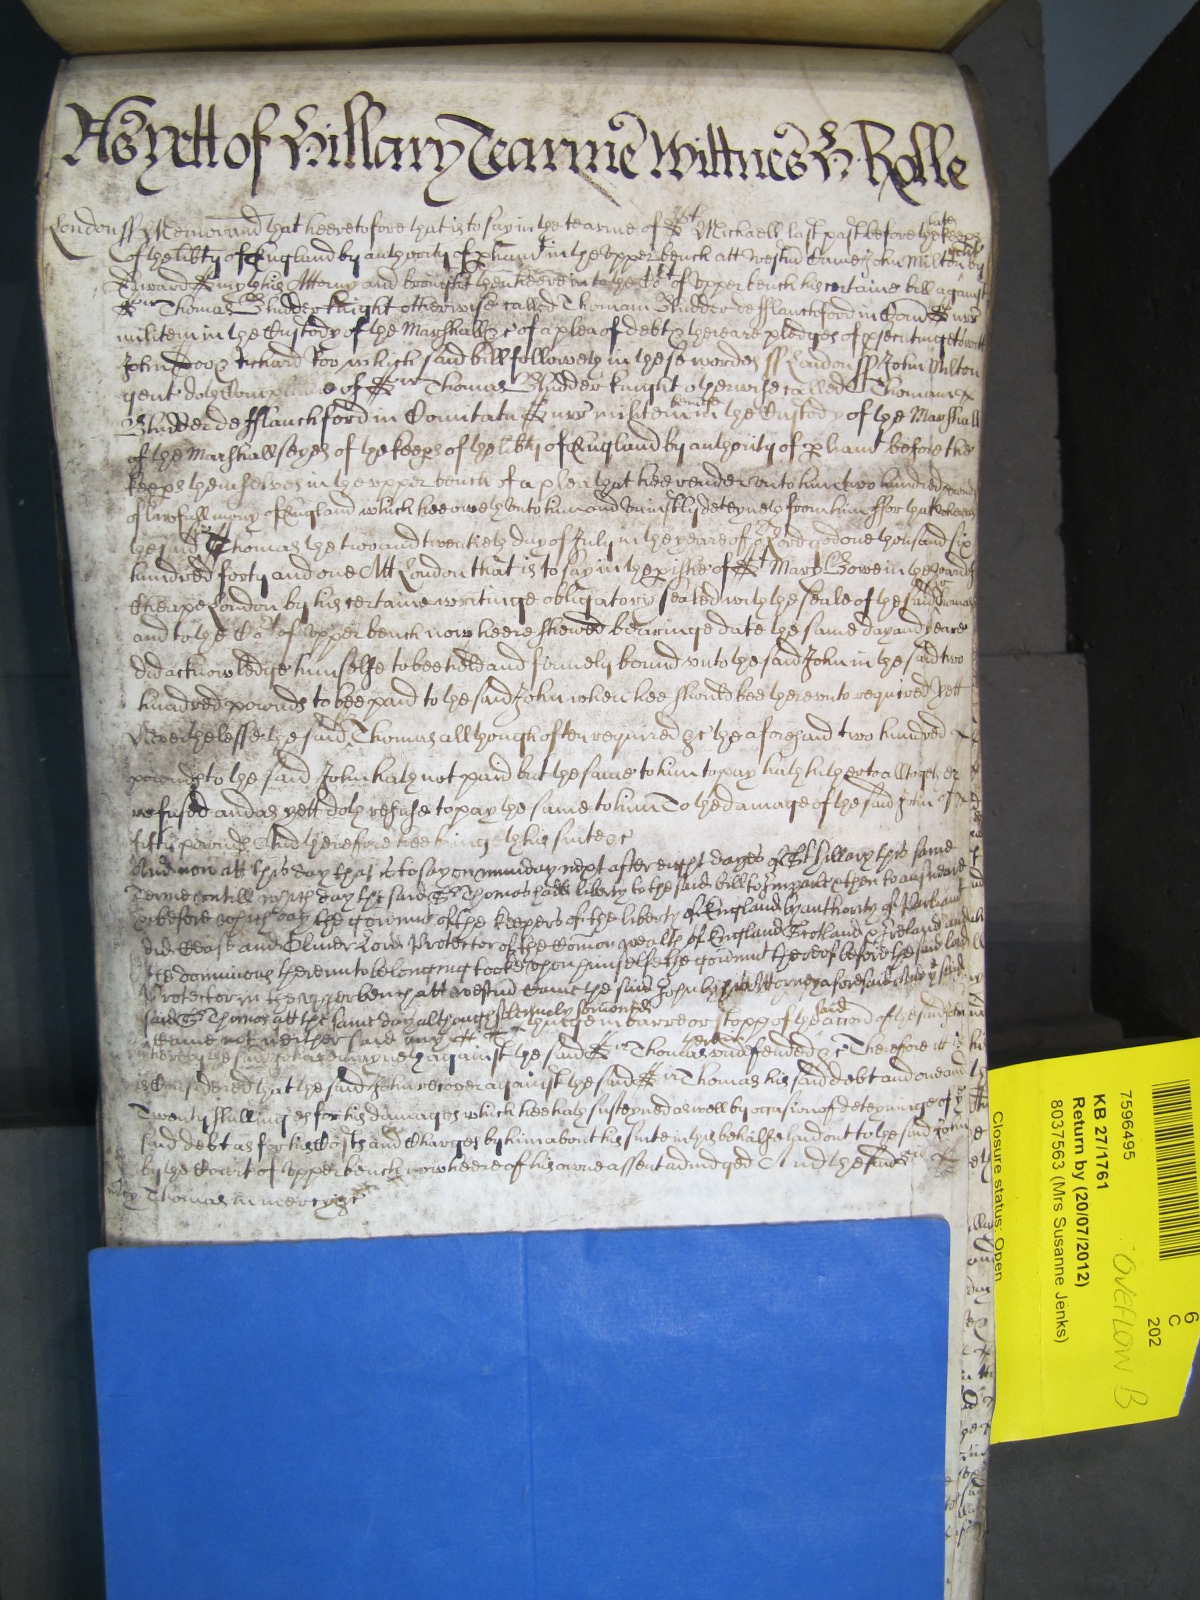 As yett of Hillary Tearme Wittnes H. Rolle
London ss Memorand that heeretofore that is to say in the tearme of St Michaell last past before the late keeps
Of the libty of England by authority of pliamt in the upper bench att Westm Came John Milton by
Edward his Attorny and brought then heere into the Cort of Upper bench his certaine bill against
Sr Thomas Bludder knight otherwise called Thomam Bludder de fflanchford in Com Surr
militem in the Custody of the Marshall &c of a plea of debt & there are pledges of psecuting to witt
John Doo & Richard Roo which said bill followeth in these wordes ss London ss John Milton
gent doth Complaine of Sr Thomas Bludder knight otherwise called Thomam
Bludder de fflanchford in Comitatu Surr militem beinge in the Custody of the Marshall
of the Marshallseyes of the keeps of the libty of England by authority of pliamt before the
keeps themselves in the upper bench of a plea that hee render unto him two hundred pounds
of lawfull mony of England which hee oweth unto him and uniustly deteyneth from him ffor that whereas
the said Sr Thomas the two and twentieth day of July in the yeare of or Lord god one thousand six
hundred forty and one Att London that is to say in the pishe of St Mary Bowe in the warde of
Cheape London by his certaine writinge obligatory sealed with the seale of the said Sr Thomas
and to the Cort of Upper bench now heere shewed bearinge date the same day and yeare
did acknowledge himselfe to bee held and firmely bound unto the said John in the said two
hundred pounds to bee paid to the said John when hee should bee thereunto required Yett
Neverthelesse the said Sr Thomas allthough often required &c the aforesaid two hundred
pounds to the said John hath not paid but the same to him to pay hath hitherto alltogether
refused and as yett doth refuse to pay the same to him To the damage of the said John of
fifty pounds And therefore hee bringeth his suite &c
And now att this day that is to say on munday next after eight dayes of St Hillary this same
Terme untill which day the said Sr Thomas hadd liberty to the said bill to Imparle & then to answeare
&c before which day the govermt of the keepers of the liberty of England by authority of Parliamt
did Cease and Oliver Lord Protector of the Comon wealth of England Scotland & Ireland and
the dominions thereunto belonging tooke upon himselfe the govermt thereof before the said lord
Protector in the upper bench att Westm Came the said John by his Attorney aforesaid And the said
Sr Thomas att the same day although solemnely summoned
Came not neither said any thinge in barre or stopp of the said accion of the said John
whereby the said John remayneth against the said Sr Thomas therein undefended &c Therefore itt is
Considered that the said John recover against the said Sr Thomas his said debt and one and
Twenty shillinges for his damages which hee hath susteyned as well by occasion of deteyninge of the
said debt as for his Costs and Charges by him about his suite in this behalfe laid out to the said John
by the Court of Upper bench now heere of his owne assent adiudged And the said Sr
Thomas in mercy &c
7596495
KB 27/1761
Return by (20/07/2012)
8037563 (Mrs Susanne Jenks)
Closure status: Open
OVEFLOW B
6
C
202